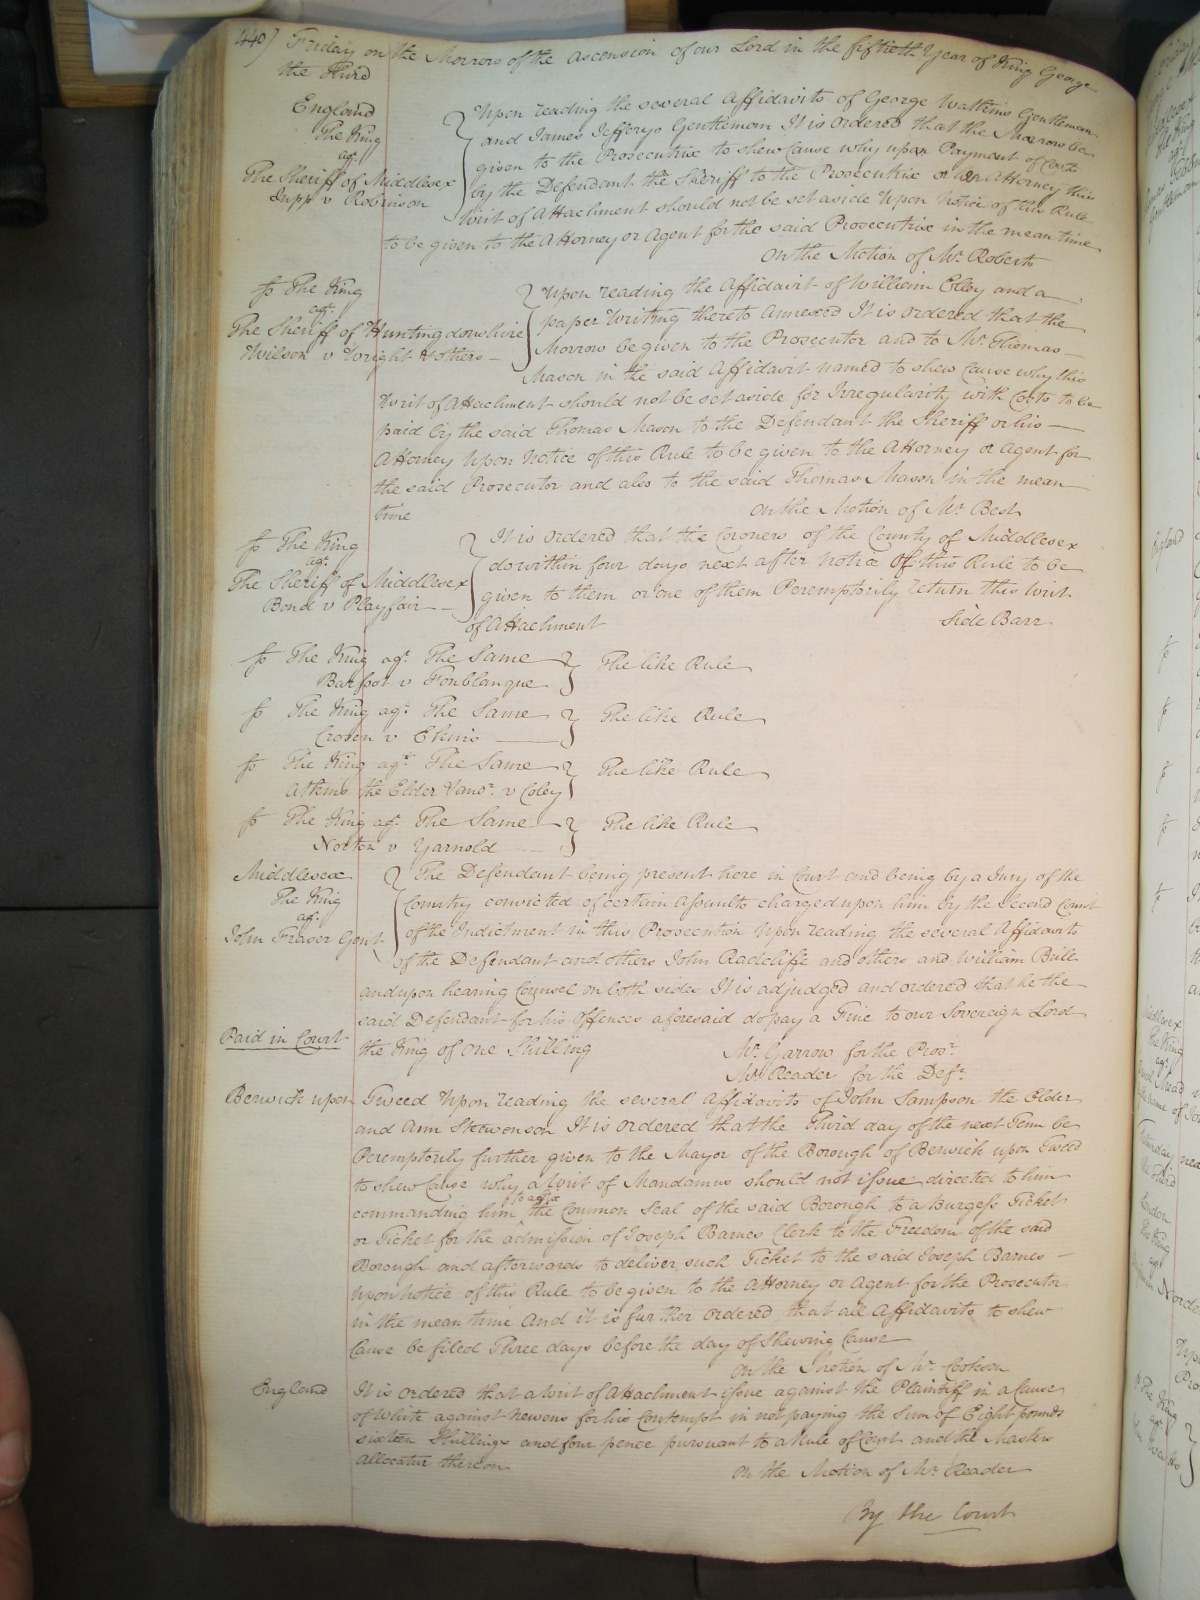 440) Friday on the Morrow of the Ascension of our Lord in the fiftieth Year of King George
the Third
England
The King
agt.
The Sheriff of Middlesex
Jupp v Robinson
Upon reading the several Affidavits of George Watkins Gentleman
and James Jefferys Gentleman It is ordered that the Morrow be
given to the Prosecutrix to shew Cause why upon Payment of Costs
by the Defendant the Sheriff to the Prosecutrix or her Attorney this
Writ of Attachment should not be set aside Upon notice of this Rule
to be given to the Attorney or Agent for the said Prosecutrix in the mean time
On the Motion of Mr. Roberts
fo The King
agt.
The Sheriff of Huntingdonshire
Wilson v Wright & others
Upon reading the Affidavit of William Elley and a
paper Writing thereto Annexed It is ordered that the
Morrow be given to the Prosecutor and to Mr. Thomas
Mason in the said Affidavit named to shew Cause why this
Writ of Attachment should not be set aside for Irregularity with Costs to be
paid by the said Thomas Mason to the Defendant the Sheriff or his
Attorney Upon Notice of this Rule to be given to the Attorney or Agent for
the said Prosecutor and also to the said Thomas Mason in the mean
time
On the Motion of Mr. Best
fo The King
agt.
The Sheriff of Middlesex
Bond v Playfair
It is ordered that the Coroners of the County of Middlesex
do within four days next after notice of this Rule to be
given to them or one of them Peremptorily return this Writ
of Attachment
Side Barr
fo The King agt. The Same
Barfoot v Fonblanque
The like Rule
fo The King agt. The Same
v Ekins
The like Rule
fo The King agt. The Same
Atkins the Elder & anor. v Coley
The like Rule
fo The King agt. The Same
Norton v Yarnold
The like Rule
Middlesex
The King
agt.
John Fraser Gent
The Defendant being present here in Court and being by a Jury of the
Country convicted of certain Assaults charged upon him by the Second Count
of the Indictment in this Prosecution Upon reading the several Affidavits
of the Defendant and others John Radcliffe and others and William Bull
and upon hearing Counsel on both sides It is adjudged and ordered that he the
said Defendant for his Offences aforesaid do pay a Fine to our Sovereign Lord
Paid in Court
the King of one Shilling
Mr. Garrow for the Prosr.
Mr. Reader for the Deft.
Berwick upon Tweed Upon reading the several Affidavits of John Sampson the Elder
and Ann Steevenson It is ordered that the Third day of the next Term be
Peremptorily further given to the Mayor of the Borough of Berwick upon Tweed
to shew Cause why a Writ of Mandamus should not issue directed to him
commanding him to affix the Common Seal of the said Borough to a Burgess Ticket
or Ticket for the admission of Joseph Barnes Clerk to the Freedom of the said
Borough and afterwards to deliver such Ticket to the said Joseph Barnes
Upon notice of this Rule to be given to the Attorney or Agent for the Prosecutor
in the mean time And it is further ordered that all Affidavits to shew
Cause be filed Three days before the day of Shewing Cause
On the Motion of Mr. Cookson
England
It is ordered that a Writ of Attachment issue against the Plaintiff in a Cause
of White against Newens for his Contempt in not paying the Sum of Eight pounds
sixteen Shillings and four pence pursuant to a Rule of Court and the Masters
allocatur thereon
On the Motion of Mr. Reader
By the Court